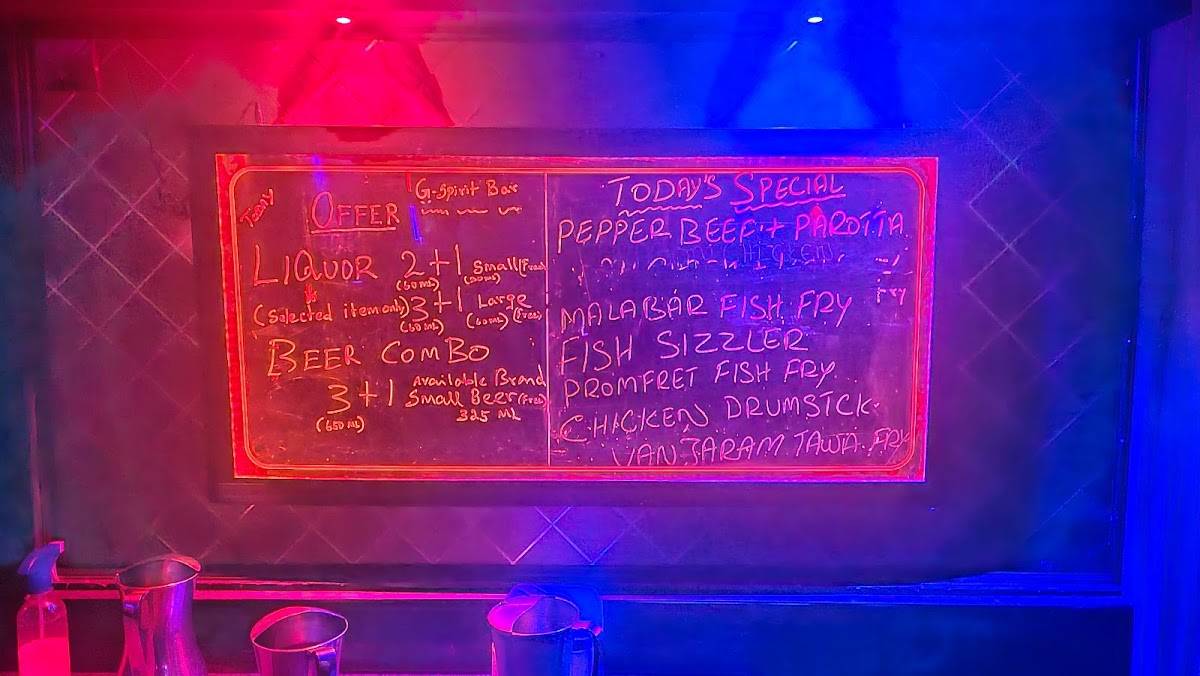 TODAY
OFFER
G-Spirit Bar
LIQUOR 2+1 Small (Free)
(60 ML)
(Selected item only) 3+1 Large (Free)
(60 ML) (60 ML)
BEER COMBO
3+1 Available Brand
Small Beer (Free)
(650 ML) 325 ML
TODAY'S SPECIAL
PEPPER BEEF + PAROTTA
Fry
MALABAR FISH FRY
FISH SIZZLER
PROMFRET FISH FRY
CHICKEN DRUMSTICK
VANJARAM TAWA FRY